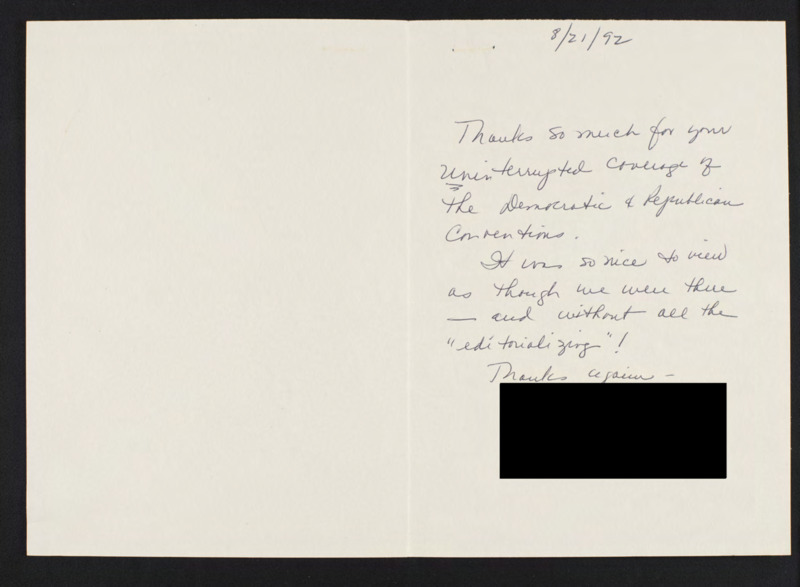 8/21/92
Thanks so much for your
Uninterrupted coverage of
the Democratic & Republican
Conventions.
It was so nice to view
as though we were there
— and without all the
"editorializing"!
Thanks again —